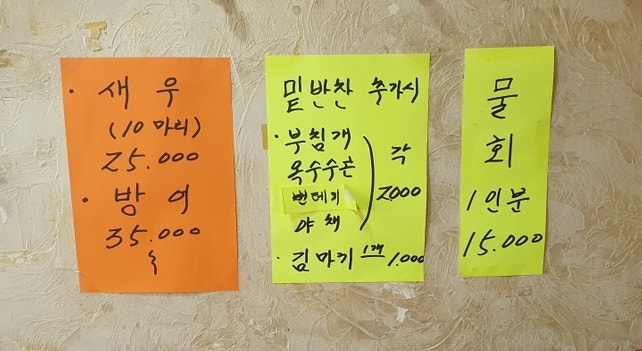 · 새우
(10마리)
25.000
· 방어
35.000
~
밑반찬 추가시
· 부침개
옥수수콘
번데기
야채
각
2000
· 김마끼 1개 1.000
물
회
1인분
15.000